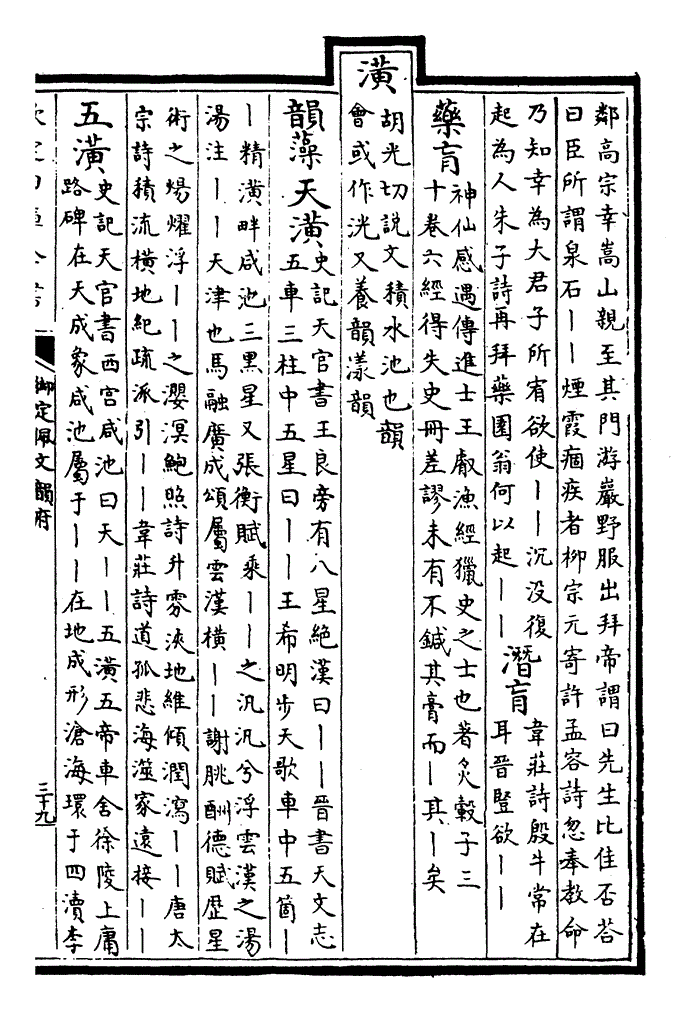 鄰高宗幸嵩山親至其門游巖野服出拜帝謂曰先生比佳否荅
曰臣所謂泉石丨丨煙霞痼疾者柳宗元寄許孟容詩忽奉教命
乃知幸為大君子所宥欲使丨丨沉没復
起為人朱子詩再拜藥園翁何以起丨丨
潛肓
韋莊詩殷牛常在
耳晉豎欲丨丨
藥肓
神仙感遇傳進士王叡漁經獵史之士也著炙轂子三
十卷六經得失史冊差謬未有不鍼其膏而丨其丨矣
潢
胡光切說文積水池也韻
會或作洸又養韻漾韻
韻藻
天潢
史記天官書王良旁有八星絶漢曰丨丨晉書天文志
五車三柱中五星曰丨丨王希明步天歌車中五箇丨
丨精潢畔咸池三黑星又張衡賦乘丨丨之汎汎兮浮雲漢之湯
湯注丨丨天津也馬融廣成頌屬雲漢橫丨丨謝朓酬德賦歴星
術之煬燿浮丨丨之瀴溟鮑照詩升雰浹地維傾潤瀉丨丨唐太
宗詩積流橫地紀疏派引丨丨韋莊詩道孤悲海澨家遠接丨丨
五潢
史記天官書西宫咸池曰天丨丨五潢五帝車舍徐陵上庸
路碑在天成象咸池屬于丨丨在地成形滄海環于四瀆李
御定佩文韻府
三十九